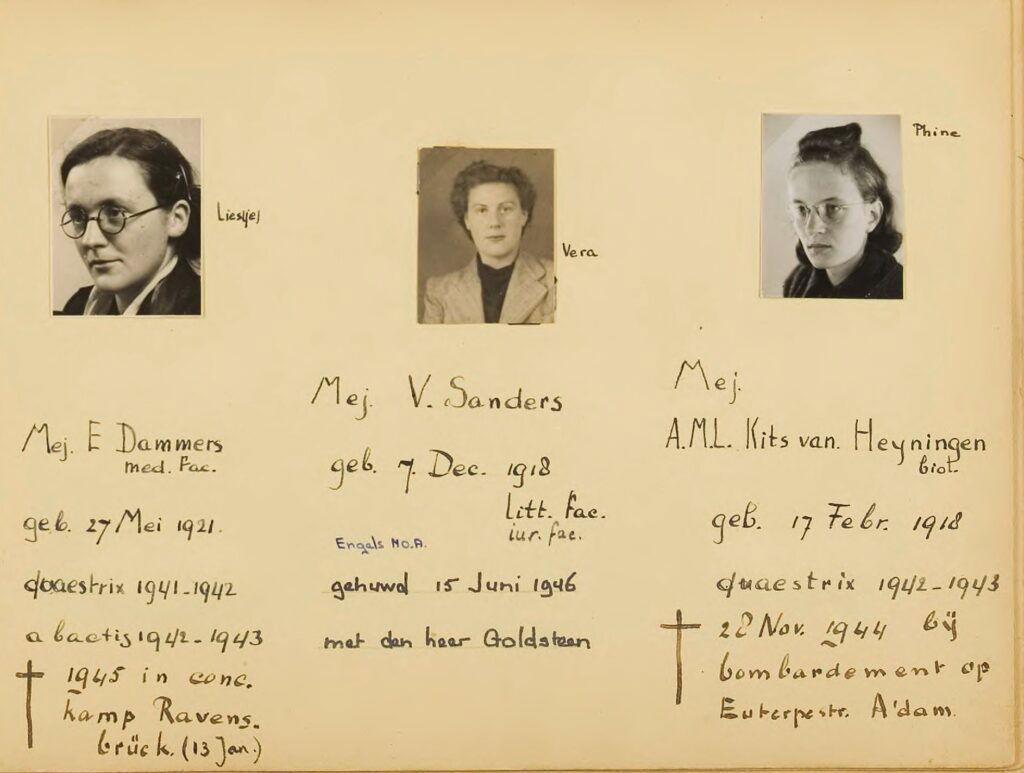 Liesjej
Mej. E Dammers
med. Fac.
geb. 27 Mei 1921.
quaestrix 1941-1942
abactis 1942-1943
1945 in conc.
kamp Ravens.
brück. (13 Jan.)
Vera
Mej. V. Sanders
geb. 7. Dec. 1918
litt. fac.
iur. fac.
Engels M.O.A.
gehuwd 15 Juni 1946
met den heer Goldsteen
Phine
Mej.
A.M.L. Kits van. Heyningen
biol.
geb. 17 Febr. 1918
quaestrix 1942-1943
28 Nov. 1944 bij
bombardement op
Euterpestr. A'dam.